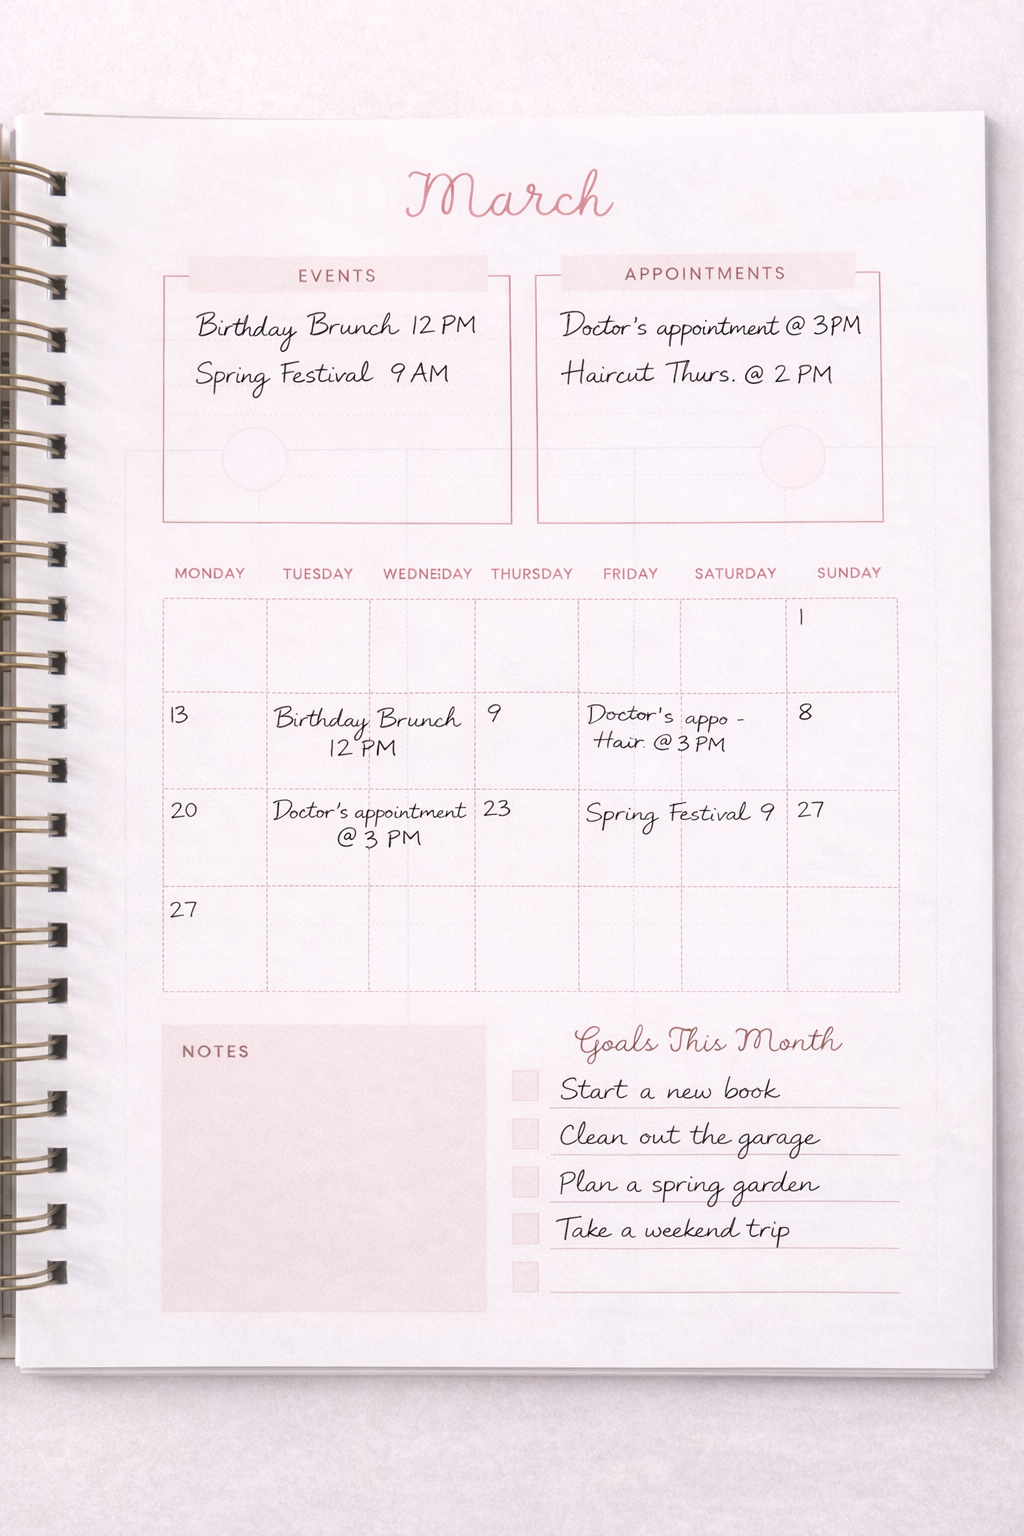 March
EVENTS
Birthday Brunch 12 PM
Spring Festival 9 AM
APPOINTMENTS
Doctor's appointment @ 3PM
Haircut Thurs. @ 2 PM
MONDAY TUESDAY WEDNEDAY THURSDAY FRIDAY SATURDAY SUNDAY
1
13 Birthday Brunch 9 Doctor's appo - 8
12 PM Hair. @ 3 PM
20 Doctor's appointment 23 Spring Festival 9 27
@ 3 PM
27
NOTES
Goals This Month
Start a new book
Clean out the garage
Plan a spring garden
Take a weekend trip